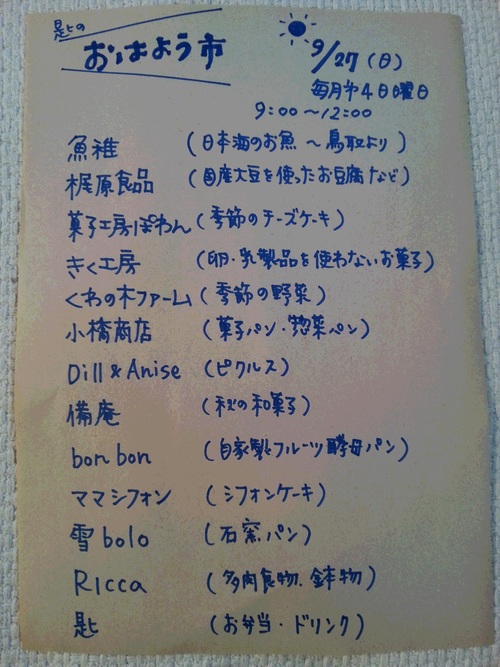 匙の
おはよう市
9/27(日)
毎月第4日曜日
9:00~12:00
魚稚 (日本海のお魚~鳥取より)
梶原食品 (国産大豆を使ったお豆腐など)
菓子工房ぽわん (季節のチーズケーキ)
きく工房 (卵・乳製品を使わないお菓子)
くわの木ファーム (季節の野菜)
小橋商店 (菓子パン・惣菜パン)
Dill & Anise (ピクルス)
備庵 (秋の和菓子)
bon bon (自家製フルーツ酵母パン)
ママシフォン (シフォンケーキ)
雪bolo (石窯パン)
Ricca (多肉食物、鉢物)
匙 (お弁当・ドリンク)